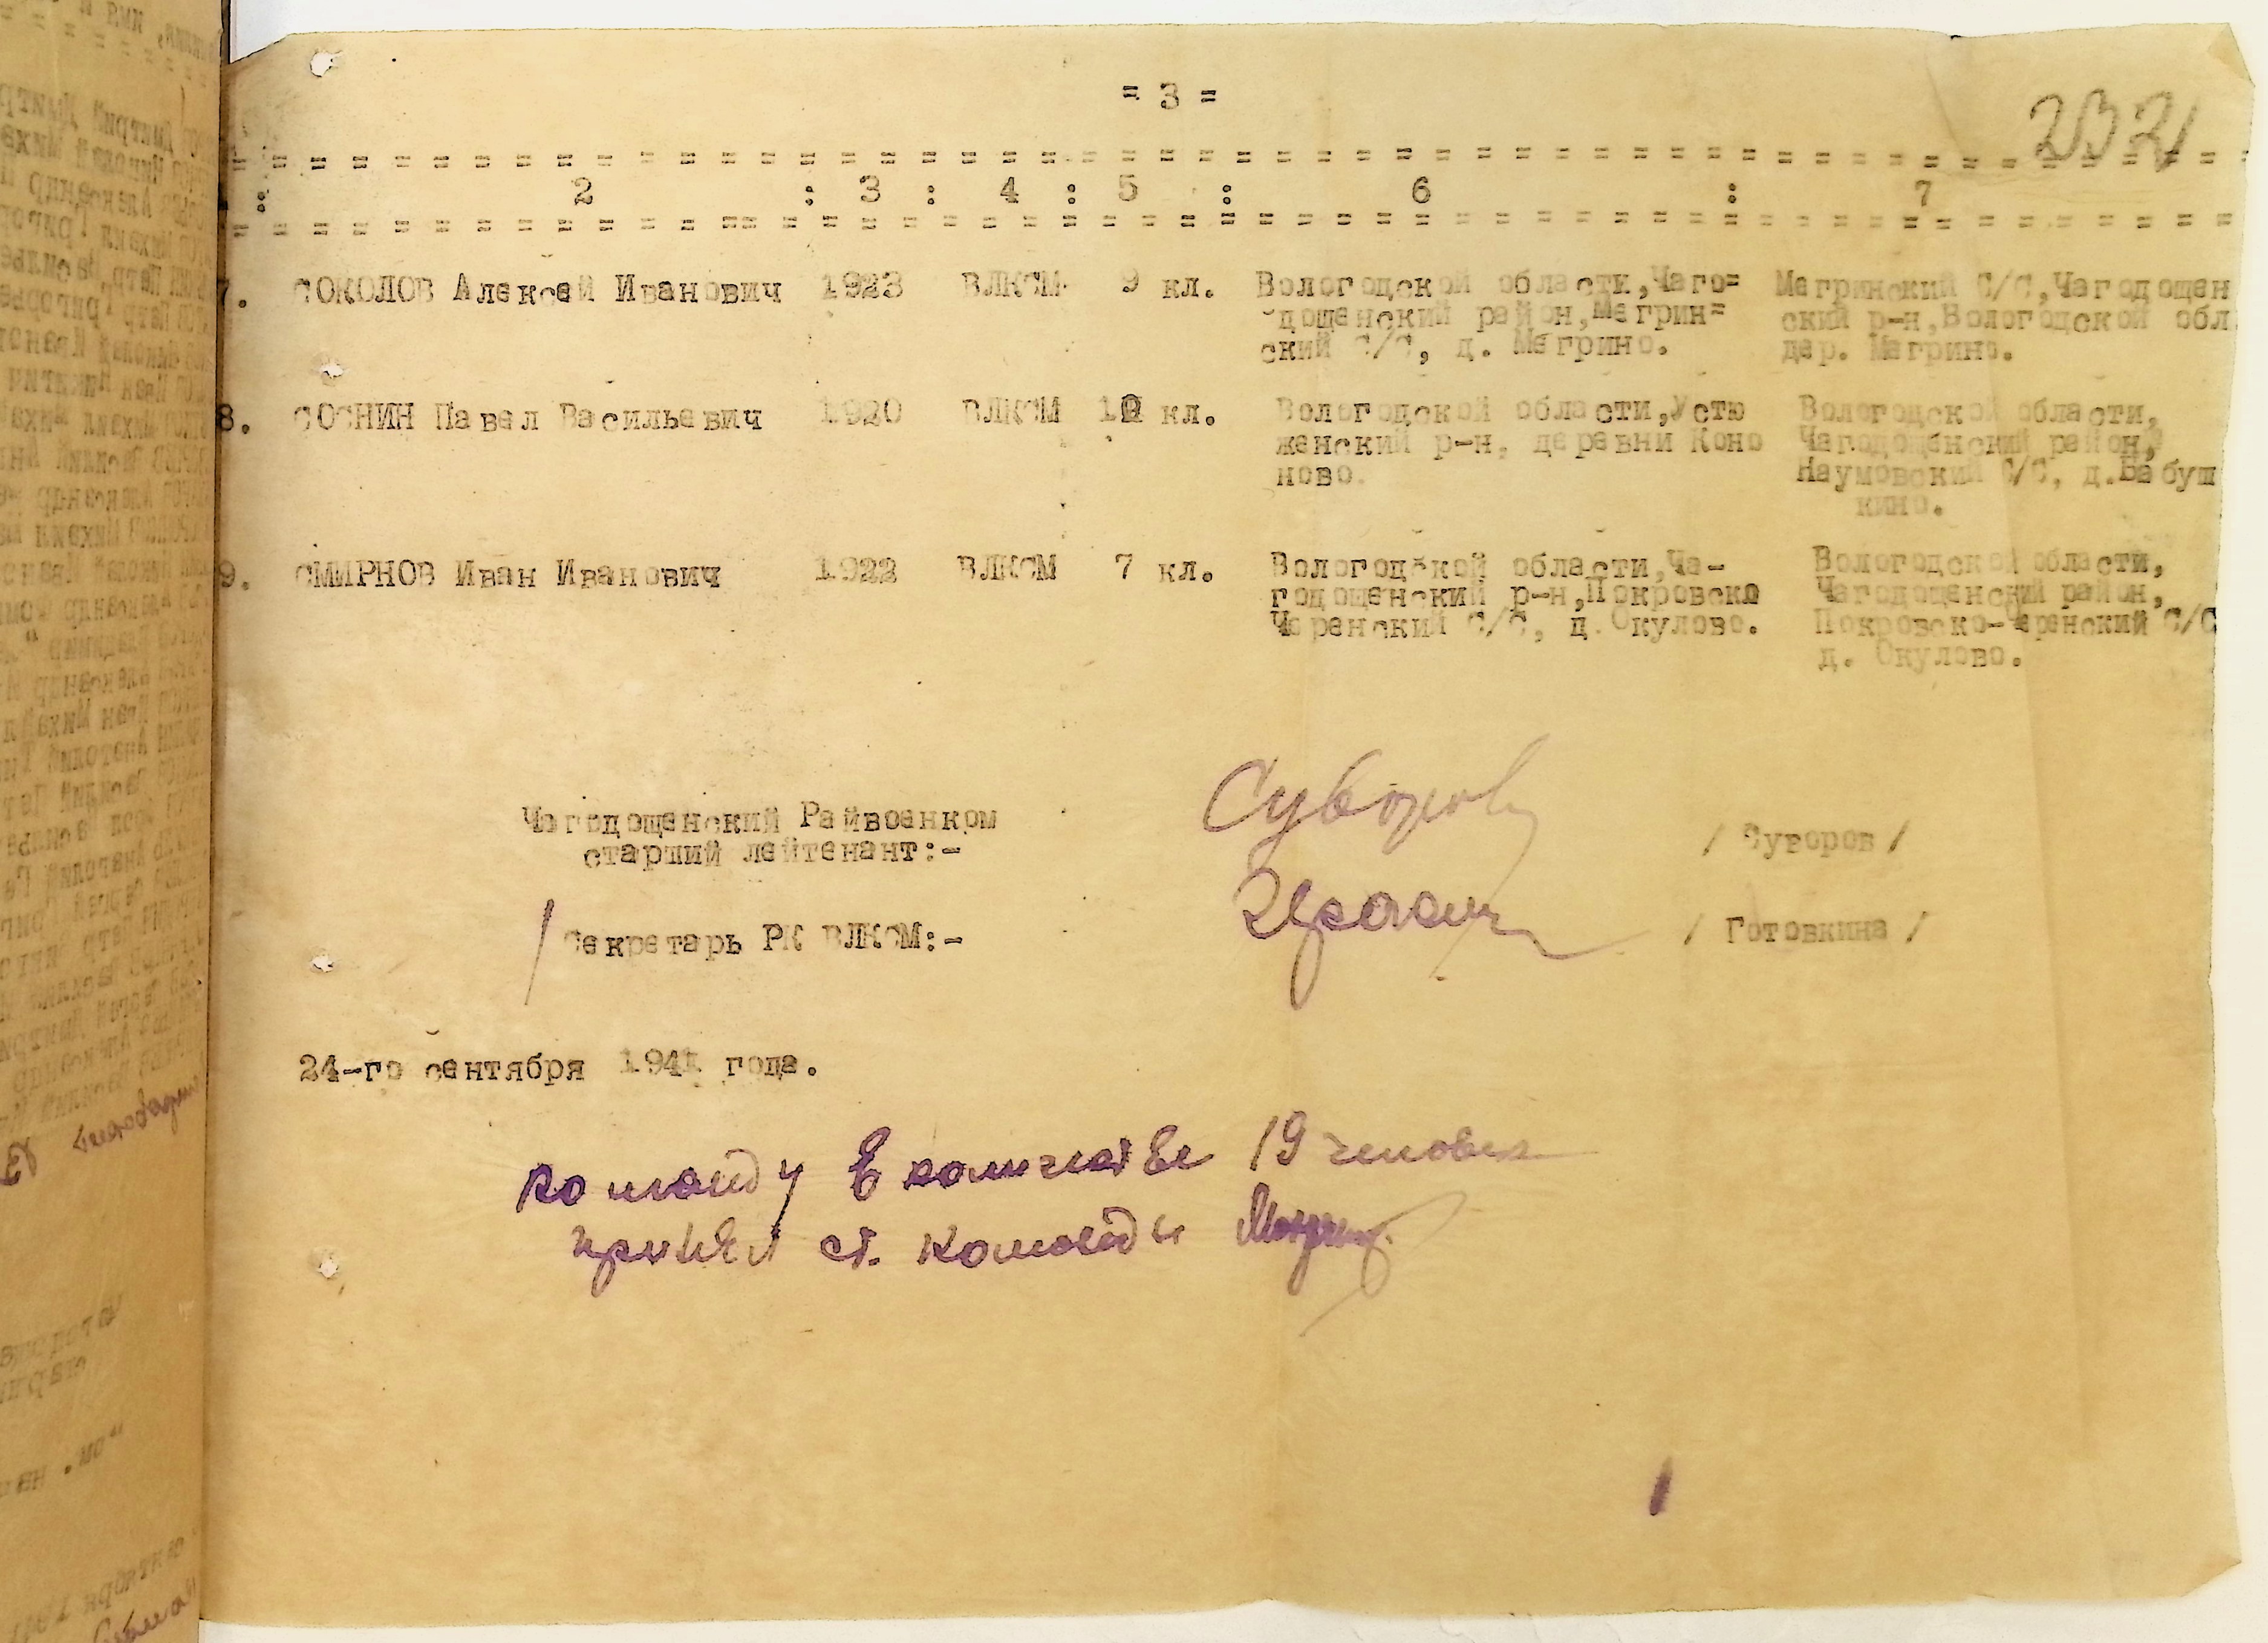 = 3 =
232
: 2 : 3 : 4 : 5 : 6 : 7
7. СОКОЛОВ Алексей Иванович 1923 ВЛКСМ 9 кл. Вологодской области,Чаго= Мегринский С/С,Чагодощен
дощенский район,Мегрин= ский р-н,Вологодской обл.
ский С/С, д. Мегрино. дер. Мегрино.
8. СОСНИН Павел Васильевич 1920 ВЛКСМ 10 кл. Вологодской области,Устю Вологодской области,
женский р-н, деревни Коно Чагодощенский район,
ново. Наумовский С/С, д.Бабуш
кино.
9. СМИРНОВ Иван Иванович 1922 ВЛКСМ 7 кл. Вологодской области,Ча- Вологодской области,
годощенский р-н,Покровско Чагодощенский район,
Черенский С/С, д. Окулово. Покровско-Черенский С/С
д. Окулово.
Чагодощенский Райвоенком
старший лейтенант:- Суворов / Суворов /
/ Секретарь РК ВЛКСМ:- / Готовкина /
24-го сентября 1941 года.
команду в количестве 19 человек
принял ст. команды